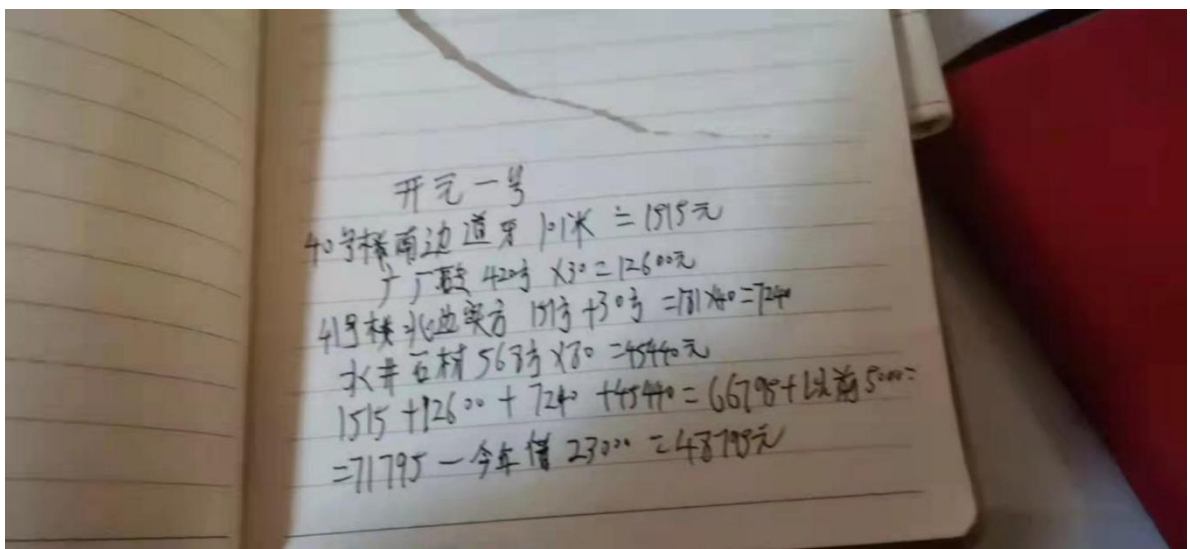 开元一号
40号楼南边道牙101米=1515元
广厂 420方×30=12600元
41号楼北边 方 151方+30方=181×40=7240
水井石材568方×80=45440元
1515+12600+7240+45440=66795+以前5000=
=71795-今年借23000=48795元